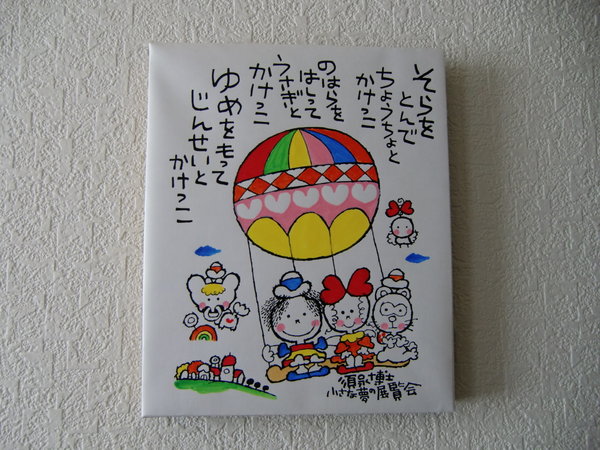 そらを
とんで
ちょうちょと
かけっこ
のはらを
はしって
うさぎと
かけっこ
ゆめをもって
じんせいと
かけっこ
須永博士
小さな夢の展覧会